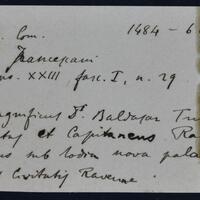 . Com. 1484-6
Francescani
ns. XXIII fasc. I, n. 29
agnificus Ds. Baldasar
et Capitaneus Ra
us sub lodia nova pala
Civitatis Ravenne.